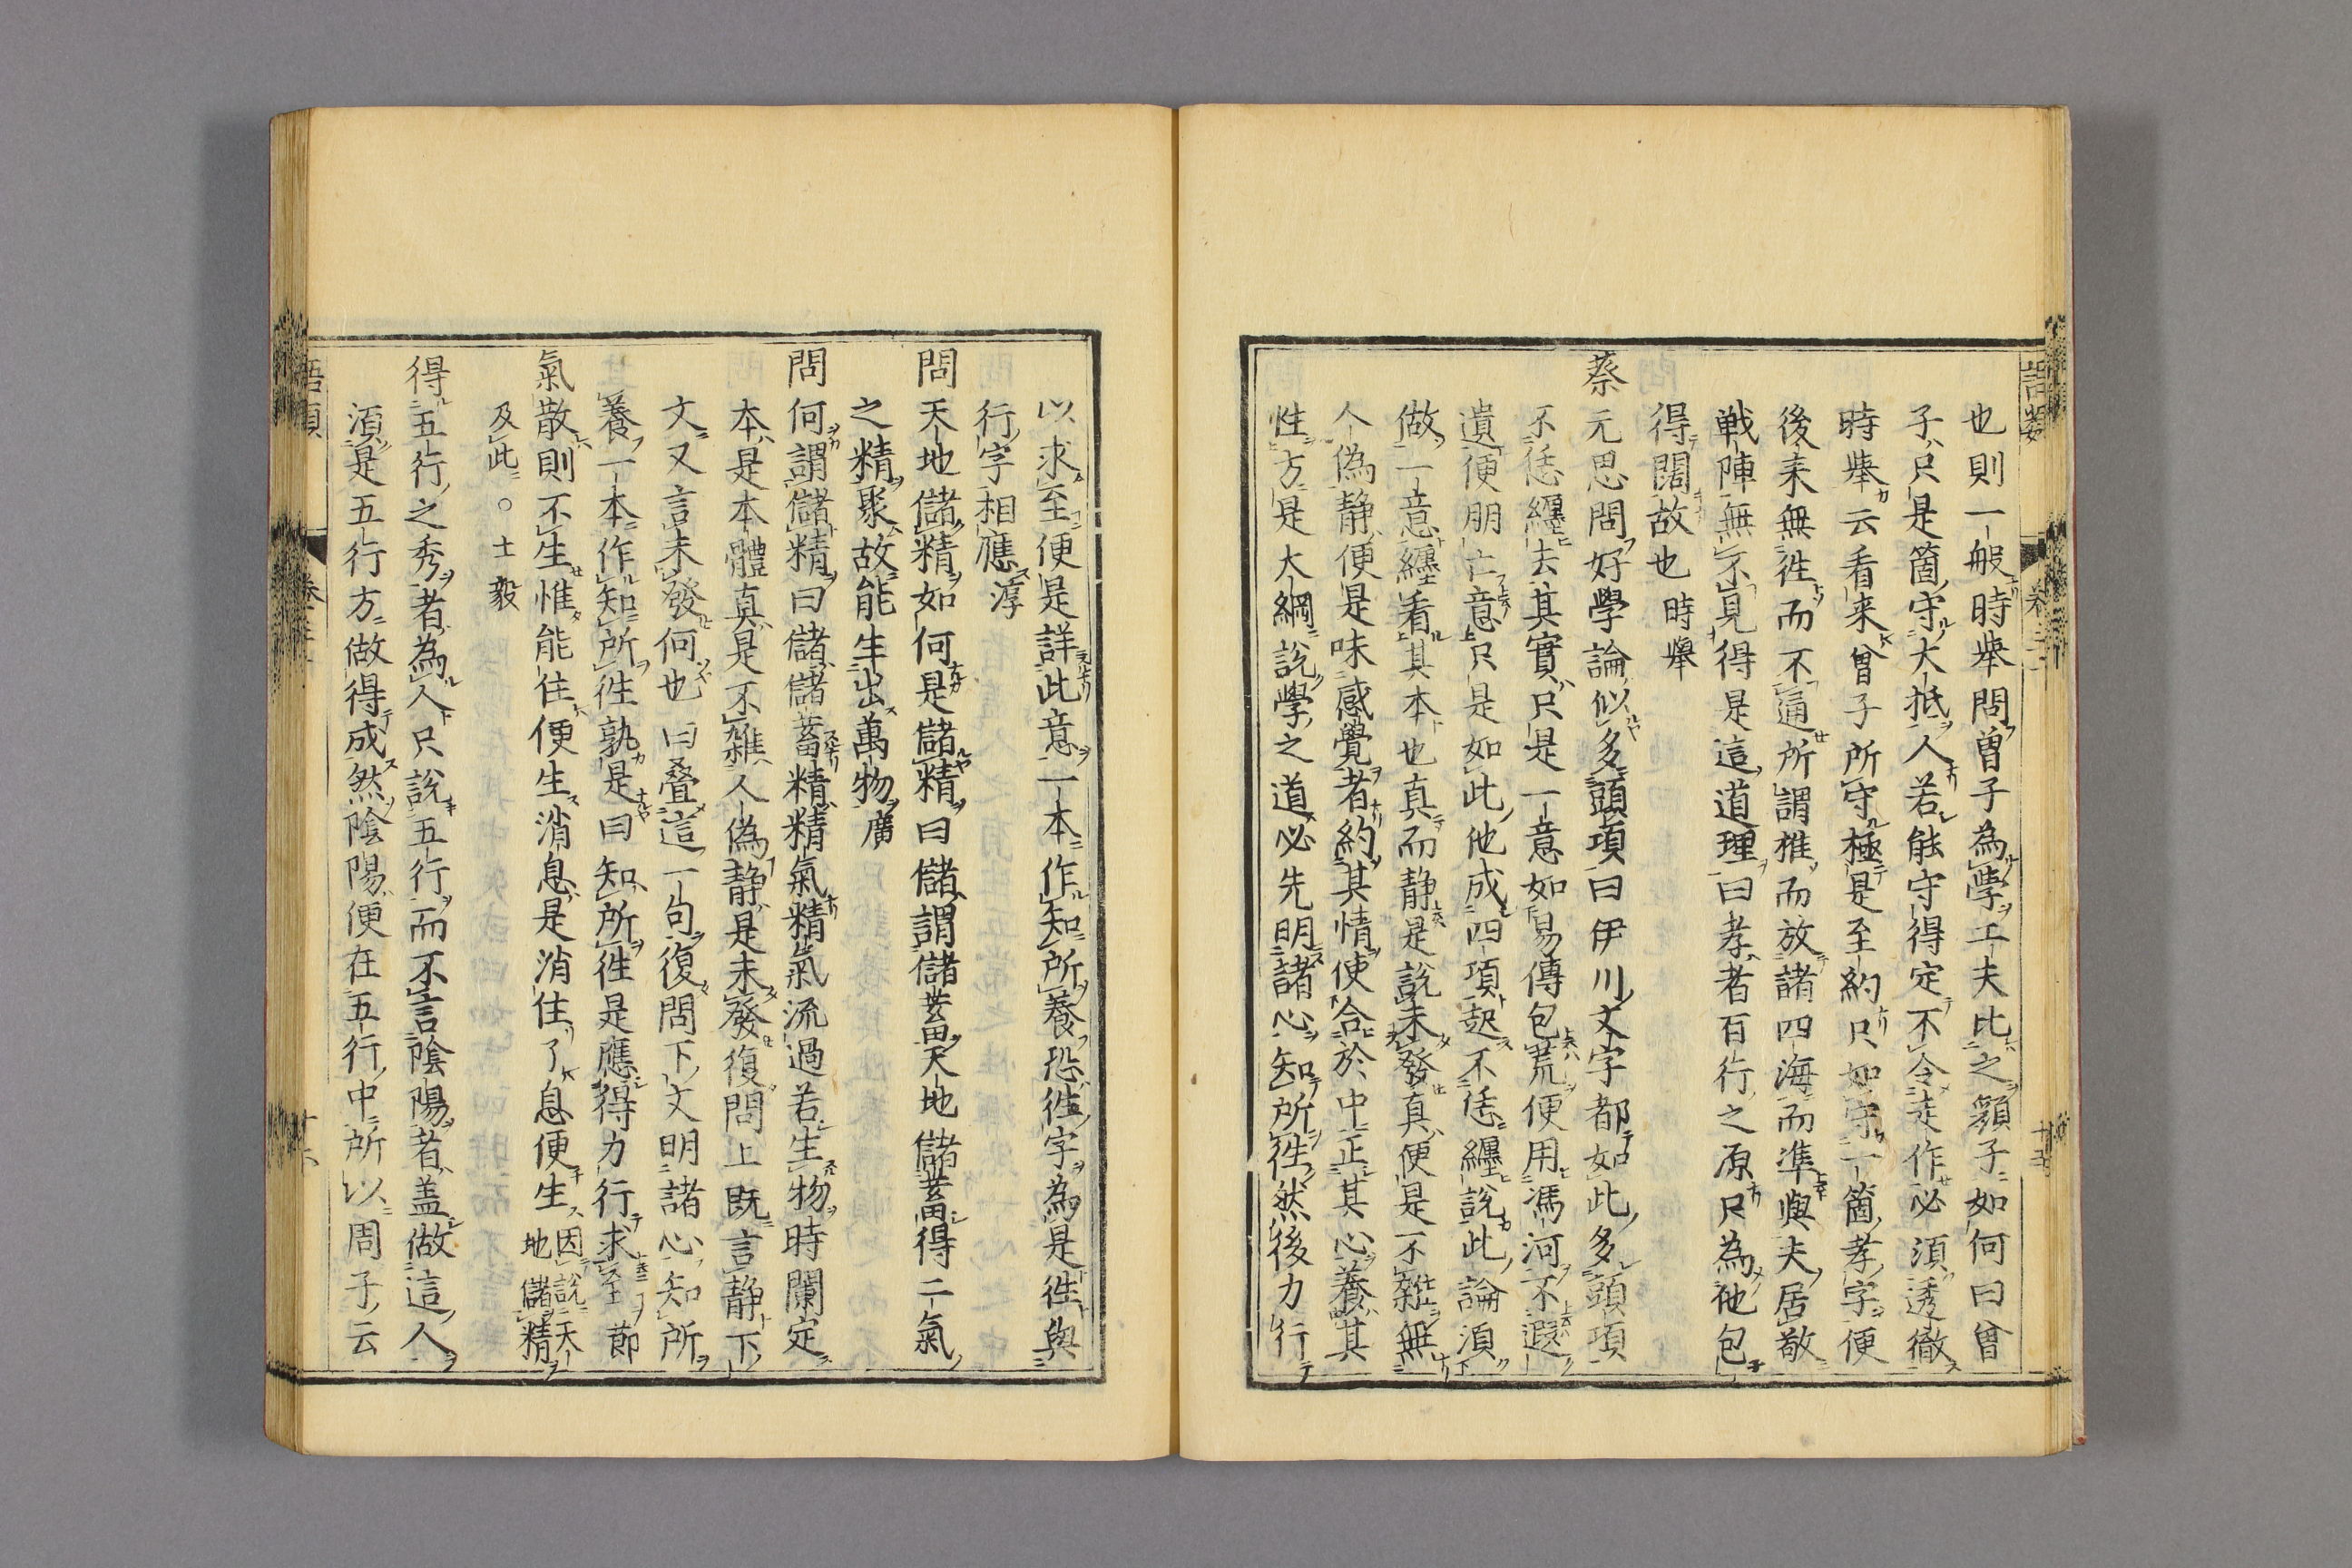 也則一般時舉問曽子為學工夫比之顔子如何曰曾
子只是箇守大抵人若能守得定不令走作必須透徹
時舉云看来曾子所守極是至約只如守一箇孝字便
後来無往而不通所謂推而放諸四海而準與夫居敬
戦陣無不見得是這道理曰孝者百行之原只為他包
得闊故也時舉
蔡元思問好學論似多頭項曰伊川文字都如此多頭項
不恁纒去其實只是一意如易傳包荒便用馮河不遐
遺便朋亡意只是如此他成四項起不恁纒說此論須
做一意纒看其本也真而静是說未發真便是不雑無
人偽静便是味感覺者約其情使合於中正其心養其
性方是大綱說學之道必先明諸心知所徃然後力行
以求至便是詳此意一本作知所養恐徃字為是徃與
行字相應淳
問天地儲精如何是儲精曰儲謂儲蓄天地儲蓄得二氣
之精聚故能生出萬物廣
問何謂儲精曰儲儲蓄精精氣精氣流過若生物時闌定
本是本體真是不雑人偽静是未發復問上既言静下
文又言未發何也曰叠這一句復問下文明諸心知所
養一本作知所徃孰是曰知所徃是應得力行求至節
氣散則不生惟能住便生消息是消住了息便生因說天地儲精
及此○士毅
得五行之秀者為人只說五行而不言陰陽者盖做這人
須是五行方做得成然陰陽便在五行中所以周子云